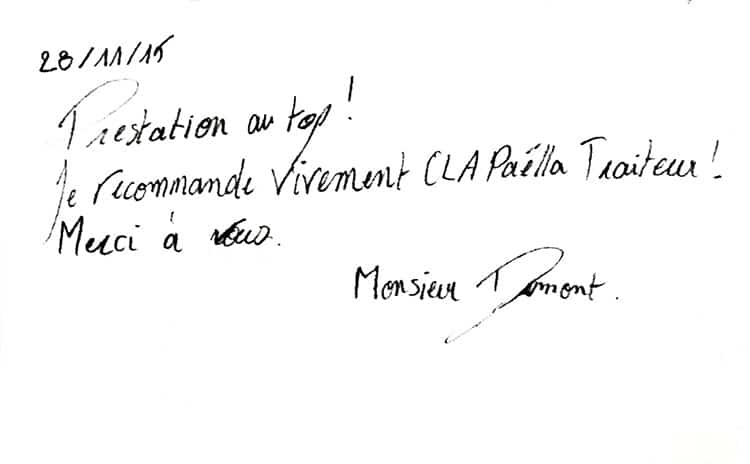 28/11/15
Prestation au top!
Je recommande vivement CLAPaëlla Traiteur!
Merci à vous.
Monsieur Dumont.